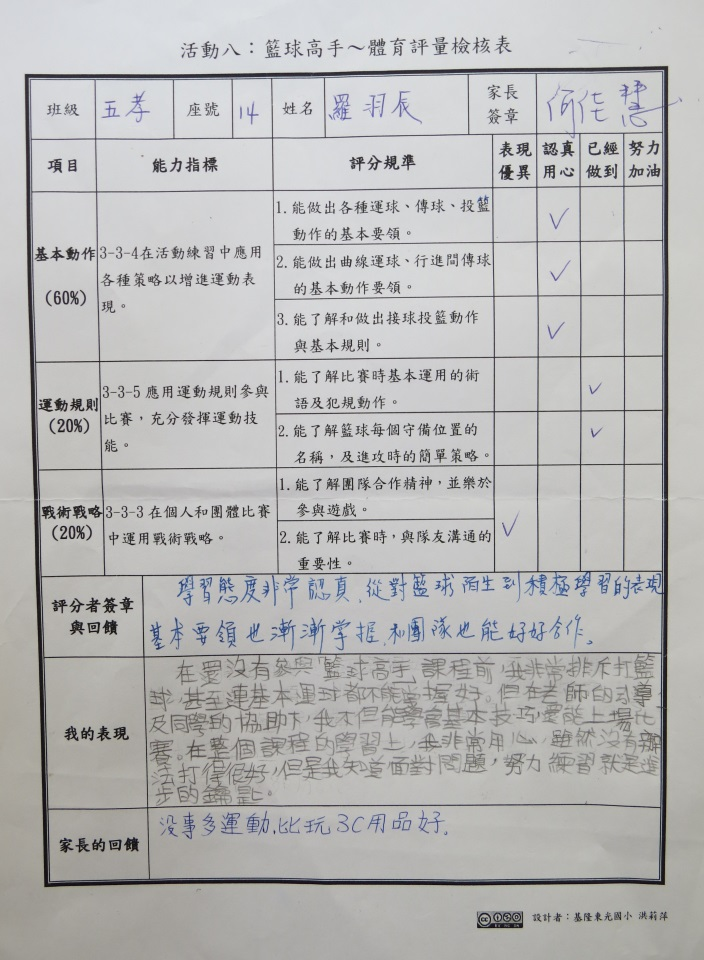 活動八：籃球高手～體育評量檢核表
班級 五孝 座號 14 姓名 羅羽辰 家長簽章 何佳慧
項目 能力指標 評分規準 表現優異 認真用心 已經做到 努力加油
基本動作
(60%)
3-3-4在活動練習中應用
各種策略以增進運動表
現。
1.能做出各種運球、傳球、投籃
動作的基本要領。
✓
2.能做出曲線運球、行進間傳球
的基本動作要領。
✓
3.能了解和做出接球投籃動作
與基本規則。
✓
運動規則
(20%)
3-3-5應用運動規則參與
比賽，充分發揮運動技
能。
1.能了解比賽時基本運用的術
語及犯規動作。
✓
2.能了解籃球每個守備位置的
名稱，及進攻時的簡單策略。
✓
戰術戰略
(20%)
3-3-3在個人和團體比賽
中運用戰術戰略。
1.能了解團隊合作精神，並樂於
參與遊戲。
2.能了解比賽時，與隊友溝通的
重要性。
✓
評分者簽章
與回饋
學習態度非常認真、從對籃球陌生到積極學習的表現
基本要領也漸漸掌握、和團隊也能好好合作。
我的表現
在還沒有參與「籃球高手」課程前，我非常排斥打籃
球，甚至連基本運球都不能掌握好。但在老師的引導
及同學的協助下，我不但能學會基本技巧，還能上場比
賽。在整個課程的學習上，我非常用心，雖然沒有辦
法打得很好，但是我知道面對問題，努力練習就是進
步的鑰匙。
家長的回饋
沒事多運動，比玩3C用品好。
設計者：基隆東光國小 洪莉萍